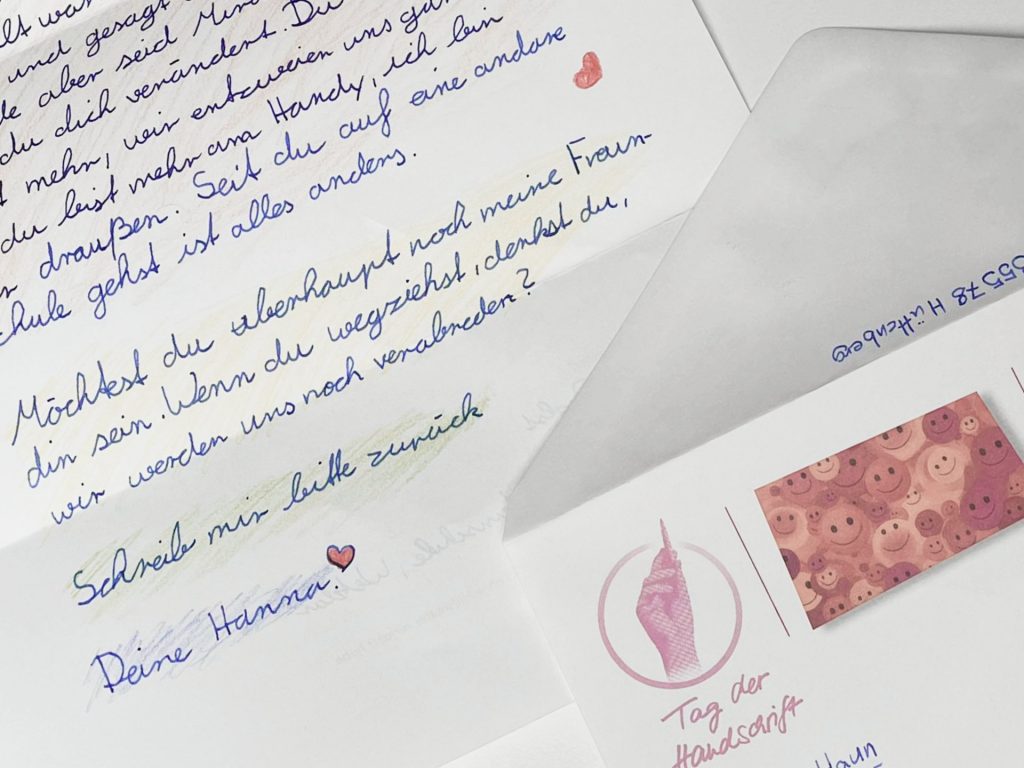 und gesagt
de aber seid
du dich verändert. Du
mehr, wir entzweien uns
du bist mehr ana Handy, ich bin
draußen. Seit du auf eine andare
chule gehst ist alles anders.
Möchtest du überhaupt noch meine Fraun-
din sein. Wenn du wegziehst, denkst du,
wir werden uns noch verabreden?
Schreib mir bitte zurück
Deine Hanna.
35578 Hüttenberg
Tag der
Handschrift